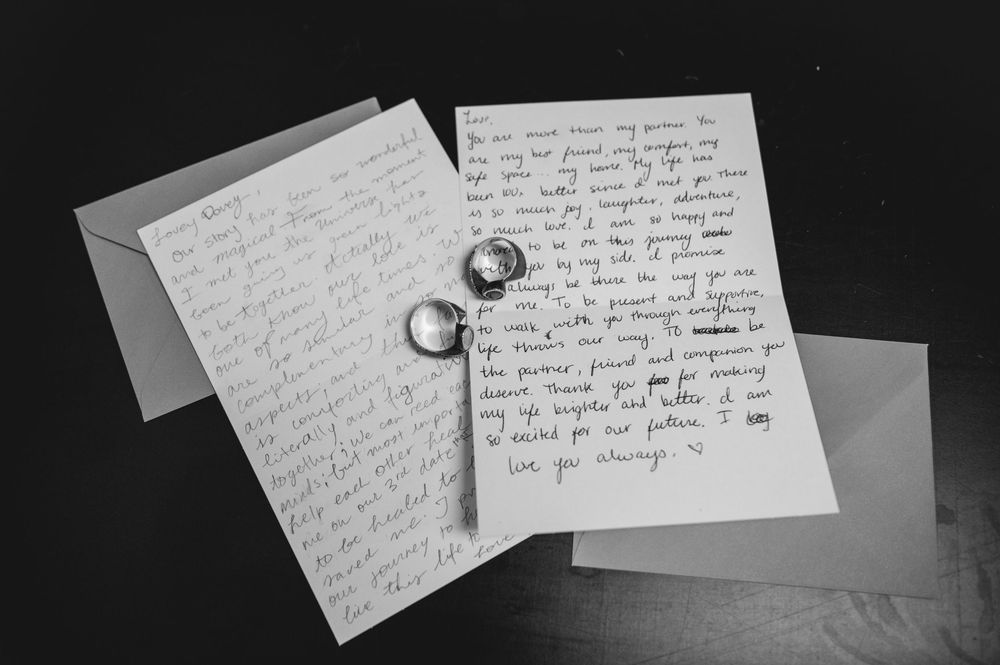 Lovey Dovey,
Our story has been so wonderful
and magical. From the moment
I met you the Universe has
been giving us green lights
to be together. Actually we
both know our love is
one of many life times. W
are so similar and so
complementary in so
aspects, and the
is comforting and
literally and figurativ
together! We can reed eac
minds, but most importa
help each other heal.
me on our 3rd date
to be healed to
saved me. I pr
our journey to h
live this life to
love
Love,
You are more than my partner. You
are my best friend, my comfort, my
safe space... my home. My life has
been 100x better since I met you. There
is so much joy, laughter, adventure,
so much love. I am so happy and
to be on this journey
with you by my side. I promise
always be there the way you are
for me. To be present and supportive,
to walk with you through everything
life throws our way. To be
the partner, friend and companion you
deserve. Thank you for making
my life brighter and better. I am
so excited for our future. I
love you always. ♡